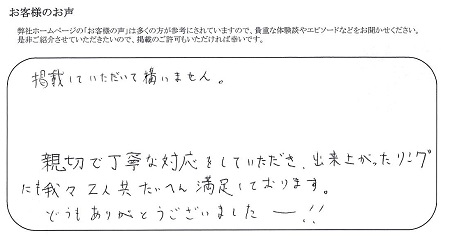 お客様のお声
弊社ホームページの「お客様の声」は多くの方が参考にされていますので、貴重な体験談やエピソードなどをお聞かせください。
是非ご紹介させていただきたいので、掲載のご許可もいただければ幸いです。
掲載していただいて構いません。
親切で丁寧な対応をしていただき、出来上がったリング
にも我々2人共たいへん満足しております。
どうもありがとうございましたー!!